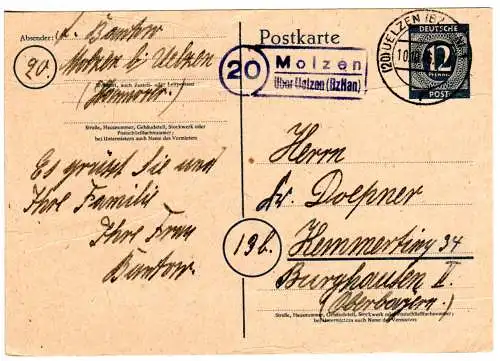 Absender: F. Bantow
20.
Molzen b/ Uelzen
Straße, Hausnummer, Gebäudeteil, Stockwerk oder
Postschließfachnummer;
bei Untermietern auch Name des Vermieters
Es grüßt Sie und
Ihre Familie
Ihre Frau
Bantow.
Postkarte
20
Molzen
über Uelzen (BzHan)
(20) UELZEN (BZ
DEUTSCHE
12
PFENNIG
POST
Herrn
Doepner
13b.
34
Burghausen II.
(Oberbayern.)
Straße, Hausnummer, Gebäudeteil, Stockwerk oder
Postschließfachnummer; bei Untermietern
auch Name des Vermieters